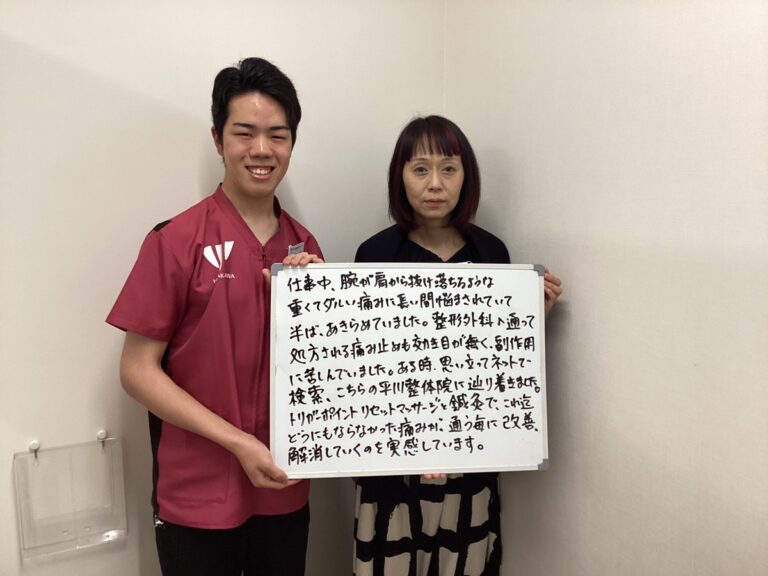 仕事中、腕が肩から抜け落ちるような
重くてダルい痛みに長い間悩まされていて
半ば、あきらめていました。整形外科へ通って
処方される痛み止めも効き目が無く、副作用
に苦しんでいました。ある時、思い立ってネットで
検索、こちらの平川整体院に辿り着きました。
トリガーポイントリセットマッサージと鍼灸で、これ迄
どうにもならなかった痛みが、通う毎に改善、
解消していくのを実感しています。